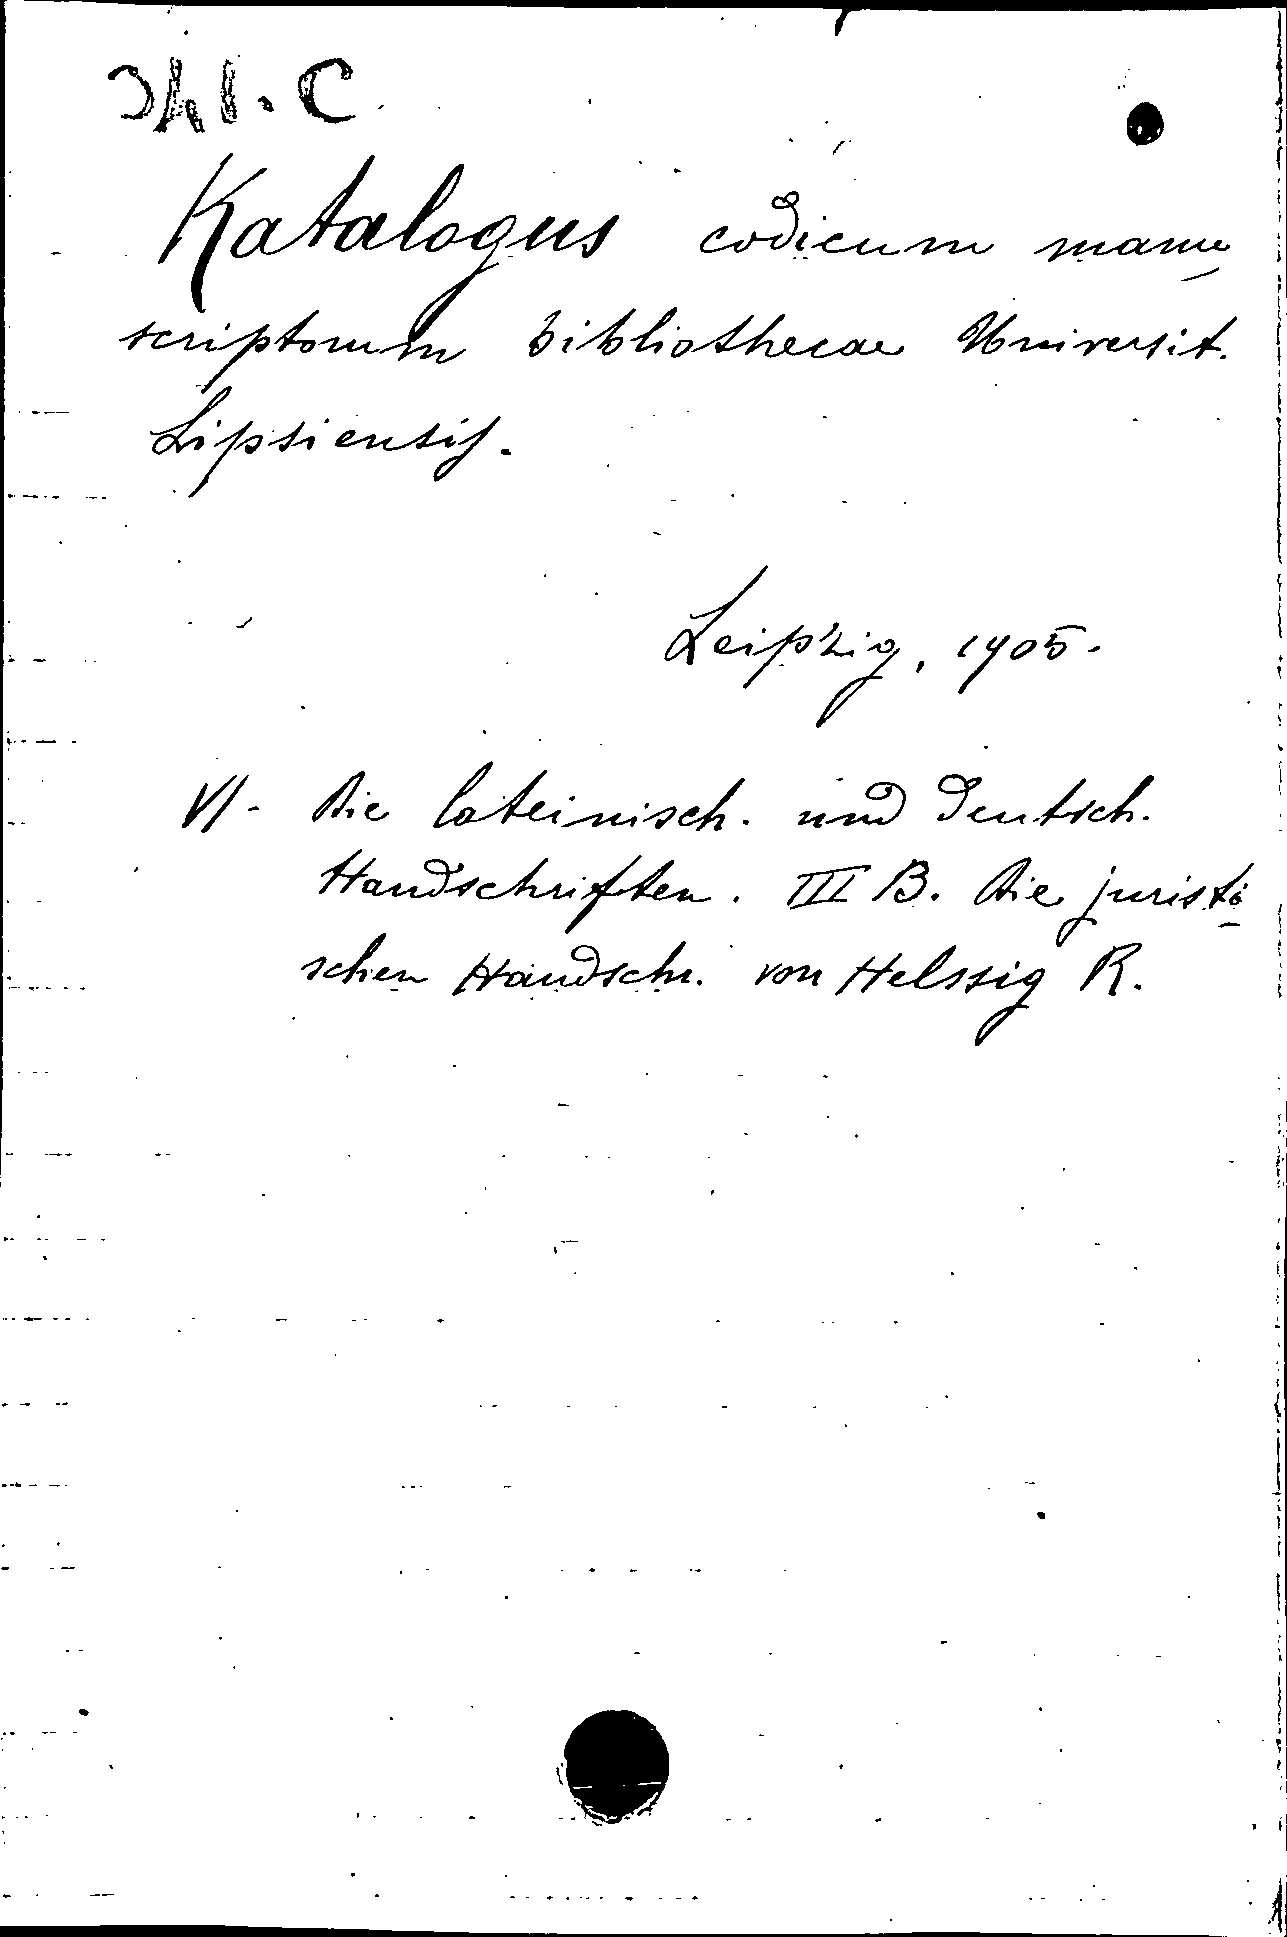 Katalogus codicum manu
scriptorum bibliothecae Universit.
Lipsiensis.
Leipzig, 1905.
VI. Die lateinisch. und Deutsch.
Handschriften. III B. Die juristi
schen Handschr. von Helssig R.